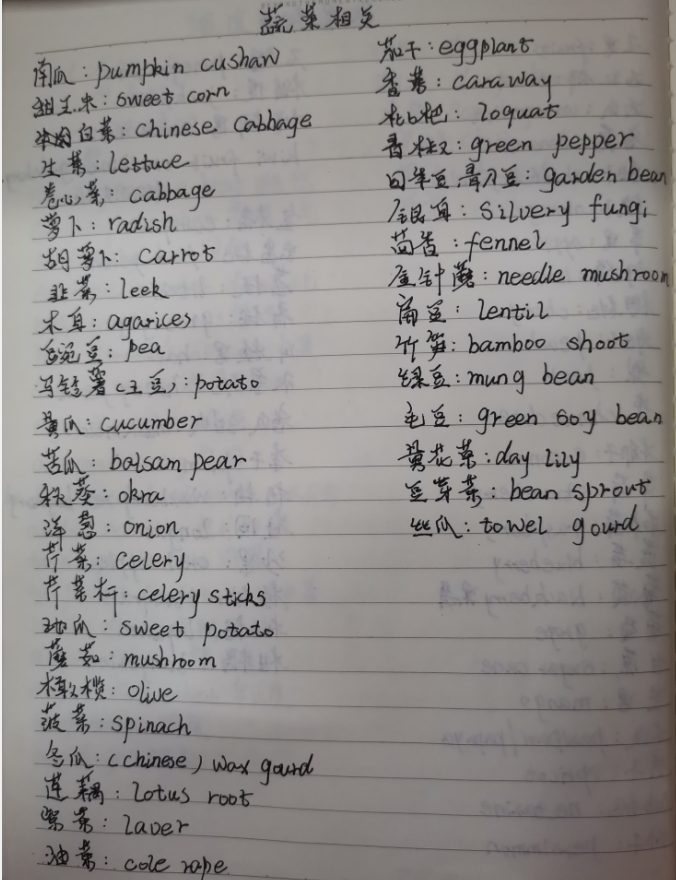 蔬菜相关
南瓜：pumpkin cushaw
甜玉米：sweet corn
白菜：chinese Cabbage
生菜：lettuce
卷心菜：cabbage
萝卜：radish
胡萝卜：carrot
韭菜：leek
木耳：agarices
豌豆：pea
马铃薯（土豆）：potato
黄瓜：cucumber
苦瓜：balsam pear
秋葵：okra
洋葱：onion
芹菜：celery
芹菜杆：celery sticks
地瓜：sweet potato
蘑菇：mushroom
橄榄：olive
菠菜：spinach
冬瓜：（chinese）wax gourd
莲藕：lotus root
紫菜：laver
油菜：cole rape
茄子：eggplant
香菜：caraway
枇杷：loquat
青椒：green pepper
四季豆，青刀豆：garden bean
银耳：silvery fungi
茴香：fennel
金针蘑：needle mushroom
扁豆：lentil
竹笋：bamboo shoot
绿豆：mung bean
毛豆：green soy bean
黄花菜：day lily
豆芽菜：bean sprout
丝瓜：towel gourd